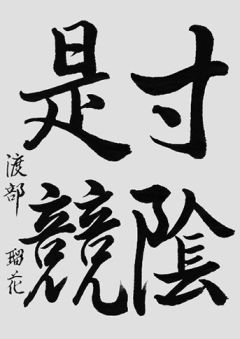 寸陰
是競
渡部 瑠花